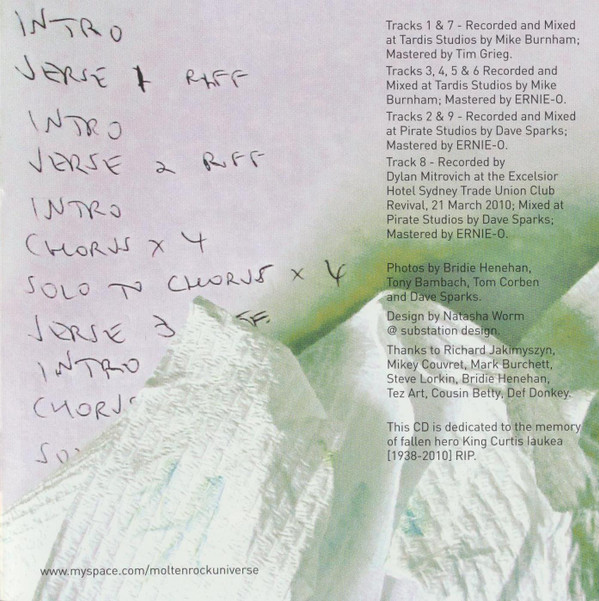 INTRO
VERSE 1 RIFF
INTRO
VERSE 2 RIFF
INTRO
CHORUS x 4
SOLO TO CHORUS x 4
VERSE 3
INTRO
CHORUS
Tracks 1 & 7 - Recorded and Mixed
at Tardis Studios by Mike Burnham;
Mastered by Tim Grieg.
Tracks 3, 4, 5 & 6 Recorded and
Mixed at Tardis Studios by Mike
Burnham; Mastered by ERNIE-O.
Tracks 2 & 9 - Recorded and Mixed
at Pirate Studios by Dave Sparks;
Mastered by ERNIE-O.
Track 8 - Recorded by
Dylan Mitrovich at the Excelsior
Hotel Sydney Trade Union Club
Revival, 21 March 2010; Mixed at
Pirate Studios by Dave Sparks;
Mastered by ERNIE-O.
Photos by Bridie Henehan,
Tony Bambach, Tom Corben
and Dave Sparks.
Design by Natasha Worm
@ substation design.
Thanks to Richard Jakimyszyn,
Mikey Couvret, Mark Burchett,
Steve Lorkin, Bridie Henehan,
Tez Art, Cousin Betty, Def Donkey.
This CD is dedicated to the memory
of fallen hero King Curtis Iaukea
[1938-2010] RIP.
www.myspace.com/moltenrockuniverse